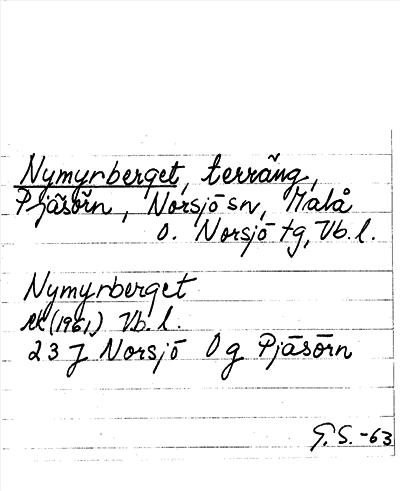 Nymyrberget, terräng,
Pjäsörn, Norsjö sn, Malå
o. Norsjö tg, Vb. l.
Nymyrberget
ek (1961) Vb. l.
23 J Norsjö 0 g Pjäsörn
G. S. -63